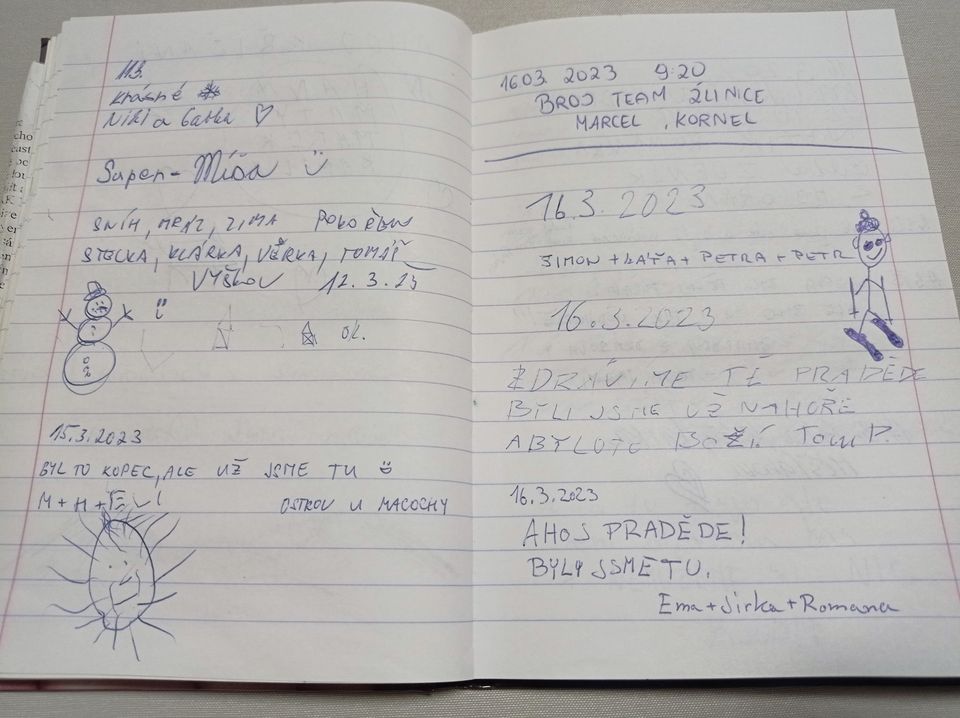 11.3.
krásné
Niki a Gabka
Super - Míša
SNÍH, MRÁZ, ZIMA
KLÁRKA, VĚRKA, TOMÁŠ
VYŠKOV 12.3.23
OK.
15.3.2023
BYL TO KOPEC, ALE UŽ JSME TU
M + H +
OSTROV U MACOCHY
16 03. 2023 9:20
BROJ TEAM ŽLINICE
MARCEL, KORNEL
16.3.2023
ŠIMON + LÁĎA + PETRA + PETR
16.3.2023
ZDRAVÍME TĚ PRADĚDE
BYLI JSME UŽ NAHOŘE
A BYLO TO BOŽÍ Tom P.
16.3.2023
AHOJ PRADĚDE!
BYLY JSME TU.
Ema + Jirka + Romana